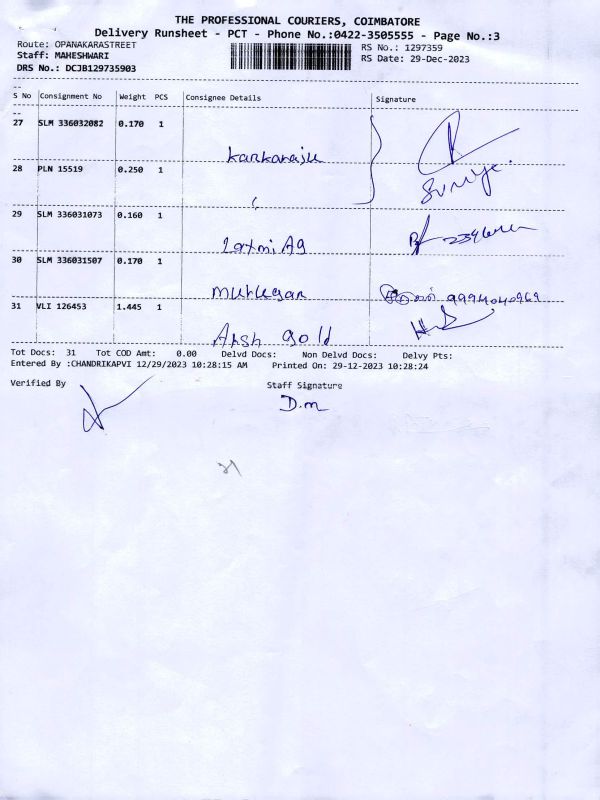 THE PROFESSIONAL COURIERS, COIMBATORE
Delivery Runsheet - PCT - Phone No.:0422-3505555 - Page No.:3
Route: OPANAKARASTREET RS No.: 1297359
Staff: MAHESHWARI RS Date: 29-Dec-2023
DRS No.: DCJB129735903
S No Consignment No Weight PCS Consignee Details Signature
27 SLM 336032082 0.170 1
28 PLN 15519 0.250 1
29 SLM 336031073 0.160 1
Laxmi Ag
30 SLM 336031507 0.170 1
Murugan 9994040969
31 VLI 126453 1.445 1
Arsh gold
Tot Docs: 31 Tot COD Amt: 0.00 Delvd Docs: Non Delvd Docs: Delvy Pts:
Entered By :CHANDRIKAPVI 12/29/2023 10:28:15 AM Printed On: 29-12-2023 10:28:24
Verified By Staff Signature
D.m